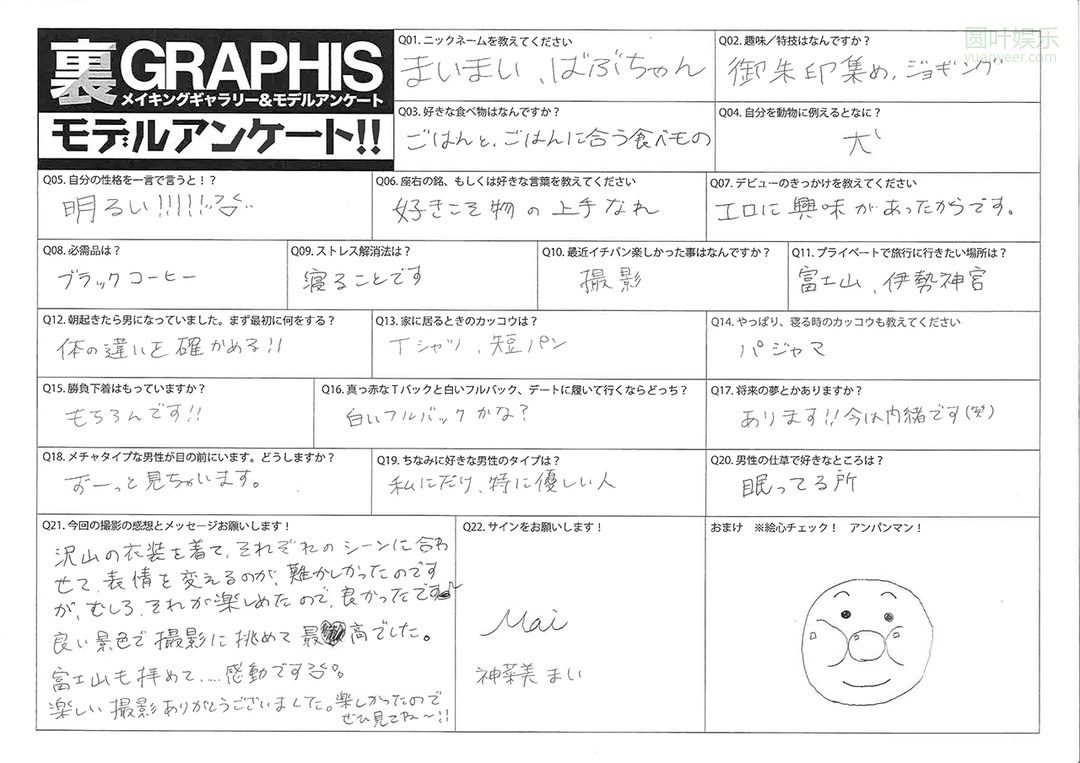 裏GRAPHIS
メイキングギャラリー&モデルアンケート
モデルアンケート!!
圆叶娱乐
yuanyeer.com
Q01. ニックネームを教えてください
まいまい、ばぶちゃん
Q02. 趣味／特技はなんですか？
御朱印集め、ジョギング
Q03. 好きな食べ物はなんですか？
ごはんと、ごはんに合う食べもの
Q04. 自分を動物に例えるとなに？
犬
Q05. 自分の性格を一言で言うと！？
明るい!!!!!
Q06. 座右の銘、もしくは好きな言葉を教えてください
好きこそ物の上手なれ
Q07. デビューのきっかけを教えてください
エロに興味があったからです。
Q08. 必需品は？
ブラックコーヒー
Q09. ストレス解消法は？
寝ることです
Q10. 最近イチバン楽しかった事はなんですか？
撮影
Q11. プライベートで旅行に行きたい場所は？
富士山、伊勢神宮
Q12. 朝起きたら男になっていました。まず最初に何をする？
体の違いを確かめる!!
Q13. 家に居るときのカッコウは？
Tシャツ、短パン
Q14. やっぱり、寝る時のカッコウも教えてください
パジャマ
Q15. 勝負下着はもっていますか？
もちろんです!!
Q16. 真っ赤なTバックと白いフルバック、デートに履いて行くならどっち？
白いフルバックかな？
Q17. 将来の夢とかありますか？
あります!!今は内緒です(笑)
Q18. メチャタイプな男性が目の前にいます。どうしますか？
ずーっと見ちゃいます。
Q19. ちなみに好きな男性のタイプは？
私にだけ、特に優しい人
Q20. 男性の仕草で好きなところは？
眠ってる所
Q21. 今回の撮影の感想とメッセージお願いします！
沢山の衣装を着て、それぞれのシーンに合わ
せて、表情を変えるのが、難かしかったのです
が、むしろ、それが楽しめたので、良かったです
良い景色で撮影に挑めて最高でした。
富士山も拝めて.....感動です
楽しい撮影ありがとうございました。楽しかったので
ぜひ見てね〜!!
Q22. サインをお願いします！
Mai
神菜美まい
おまけ　※絵心チェック！　アンパンマン！